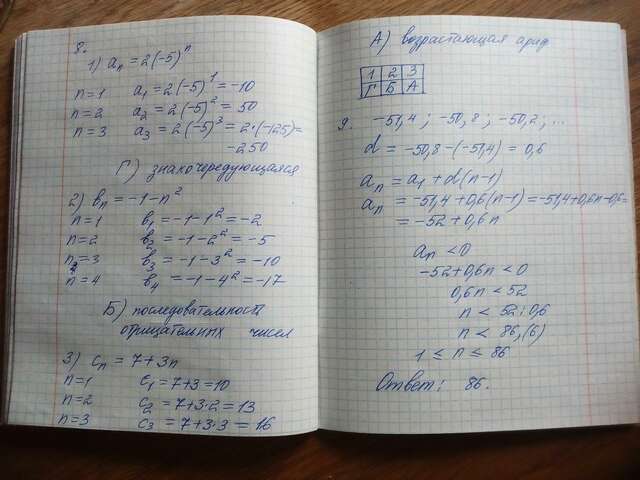 8.
1) aₙ = 2(-5)ⁿ
n=1 a₁ = 2(-5)¹ = -10
n=2 a₂ = 2(-5)² = 50
n=3 a₃ = 2(-5)³ = 2·(-125)=
-250
Г) знакочередующаяся
2) bₙ = -1-n²
n=1 b₁ = -1-1² = -2
n=2 b₂ = -1-2² = -5
n=3 b₃ = -1-3² = -10
n=4 b₄ = -1-4² = -17
Б) последовательность
отрицательных чисел
3) cₙ = 7+3n
n=1 c₁ = 7+3 = 10
n=2 c₂ = 7+3·2 = 13
n=3 c₃ = 7+3·3 = 16
А) возрастающая ариф
1 2 3
Г Б А
9. -51,4 ; -50,8 ; -50,2 ; ...
d = -50,8-(-51,4) = 0,6
aₙ = a₁ + d(n-1)
aₙ = -51,4+0,6(n-1) = -51,4+0,6n-0,6=
= -52+0,6n
aₙ < 0
-52+0,6n < 0
0,6n < 52
n < 52:0,6
n < 86,(6)
1 ≤ n ≤ 86
Ответ: 86.